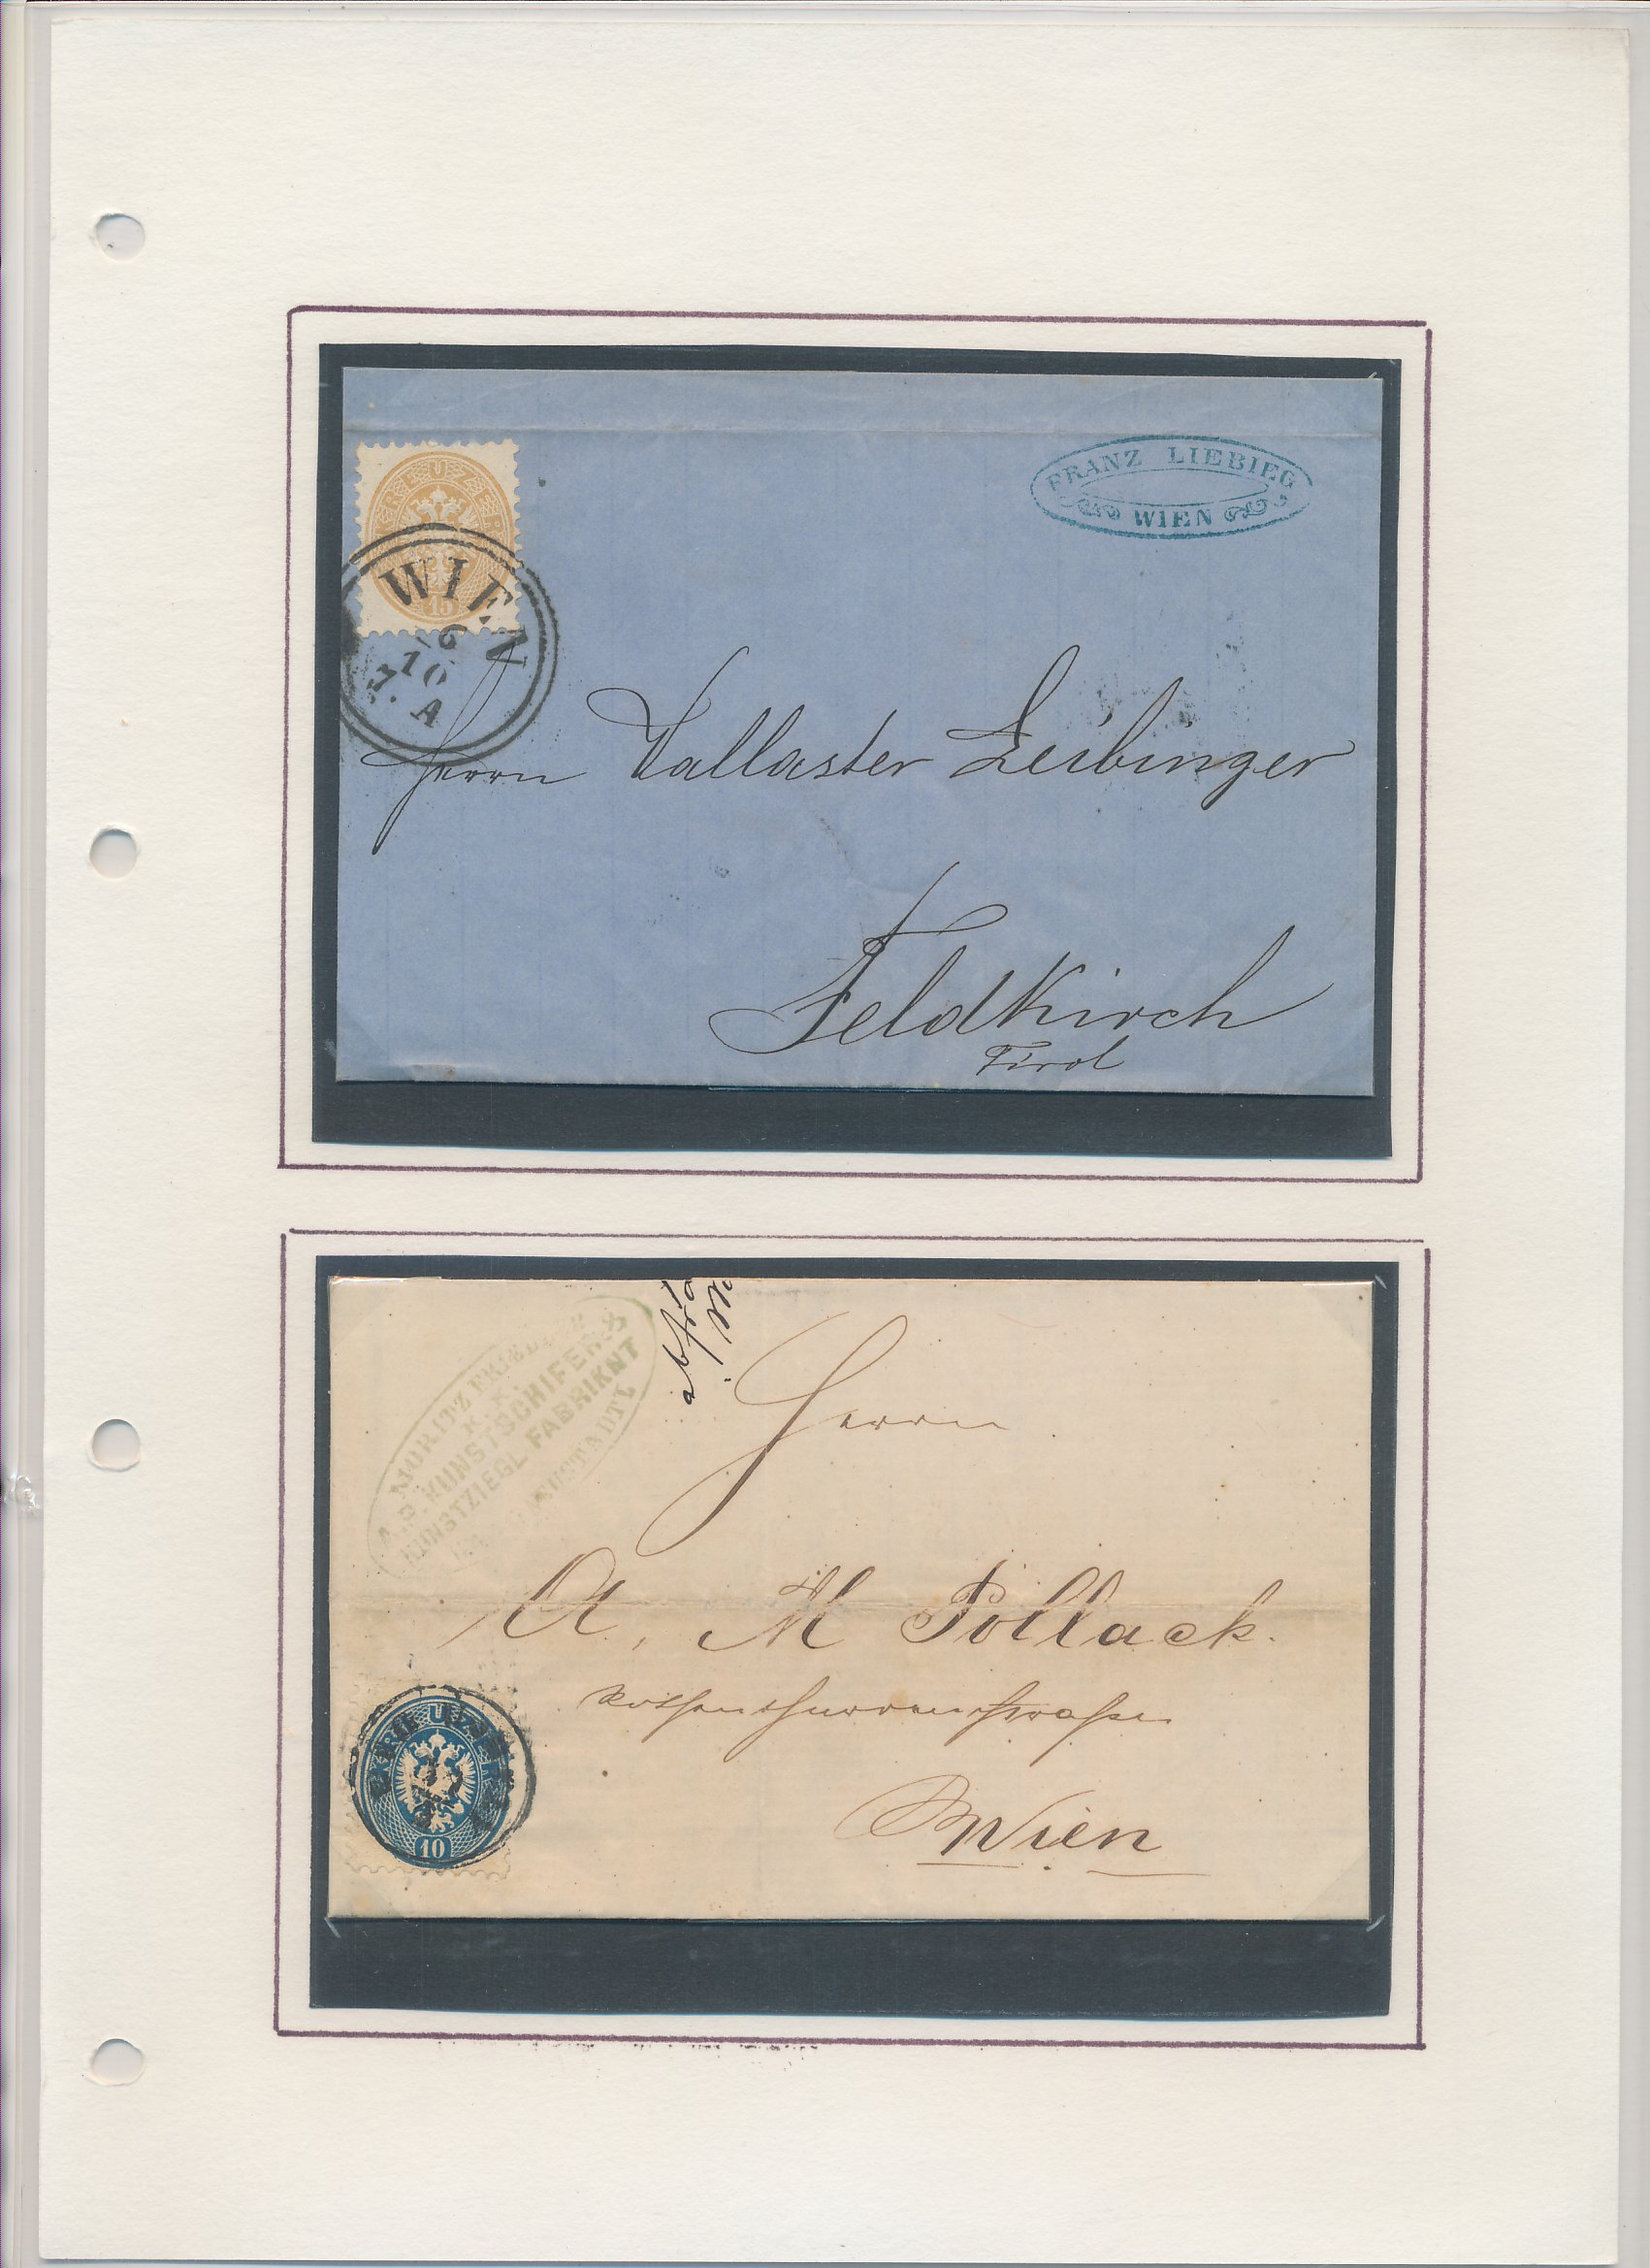 KREUZER
15
WIEN
6
10
7. A
FRANZ LIEBIEG
WIEN
Herrn Vallaster Leibinger
Feldkirch
Tirol
MORITZ
K. K.
A. P. KUNSTSCHIFER &
KUNSTZIEGL FABRIKNT
NEUSTADTL
Herrn
A. M Pollack.
Rothenthurmstrasse
Wien
KREUZER
10